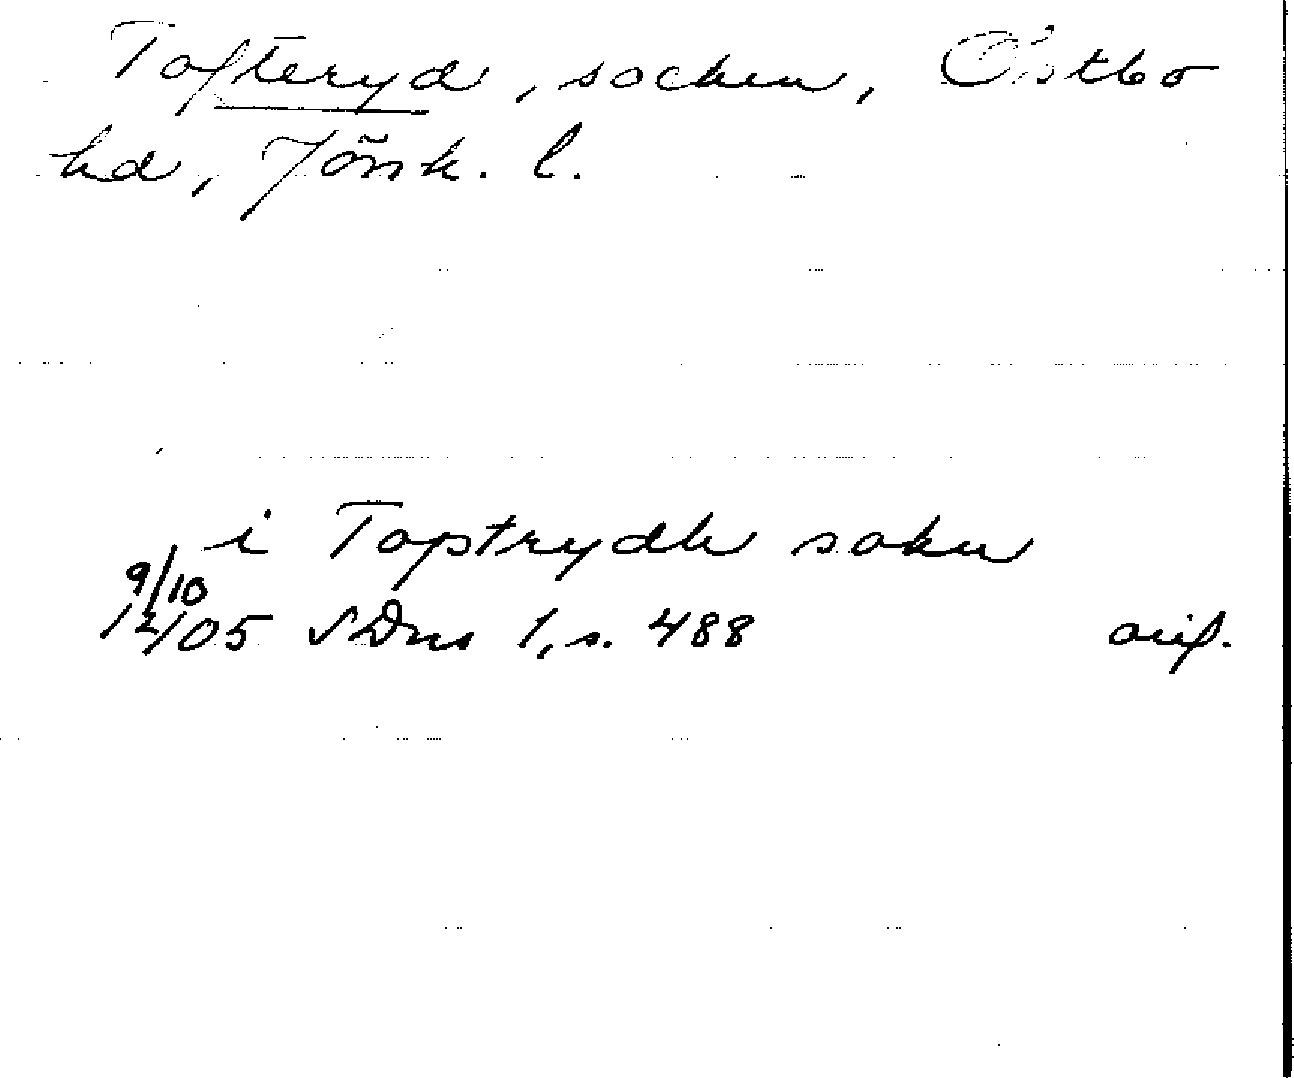 Tofteryd, socken, Östbo
hd, Jönk. l.
i Toptrydh sokn
9/10
1405 SDns 1, s. 488 orig.